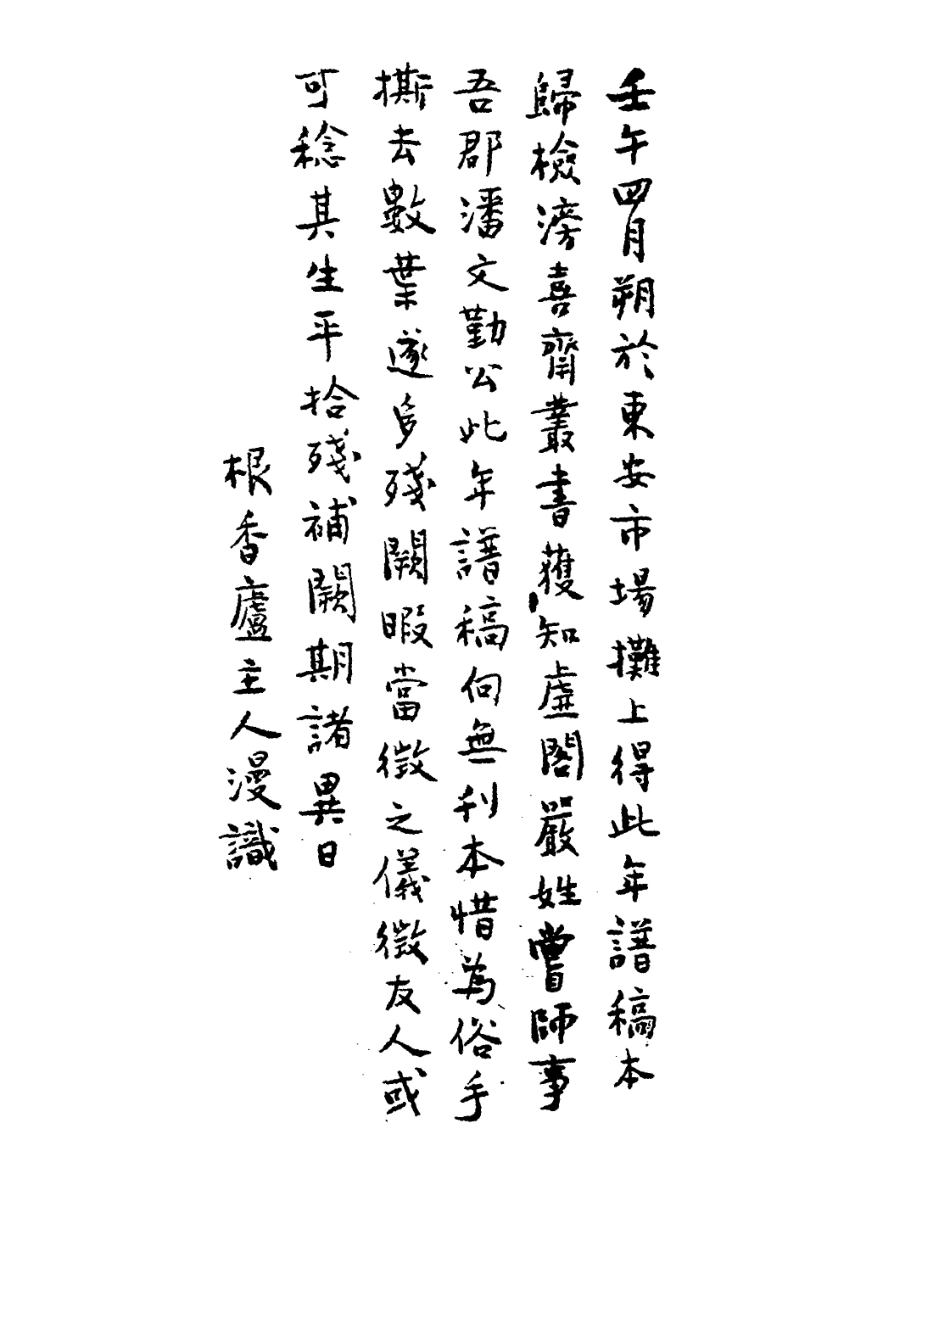 壬午四月朔於東安市場攤上得此年譜稿本
歸檢滂喜齋叢書獲知虛閣嚴姓嘗師事
吾郡潘文勤公此年譜稿向無刊本惜為俗手
撕去數葉遂多殘闕暇當徵之儀徵友人或
可稔其生平拾殘補闕期諸異日
根香廬主人漫識